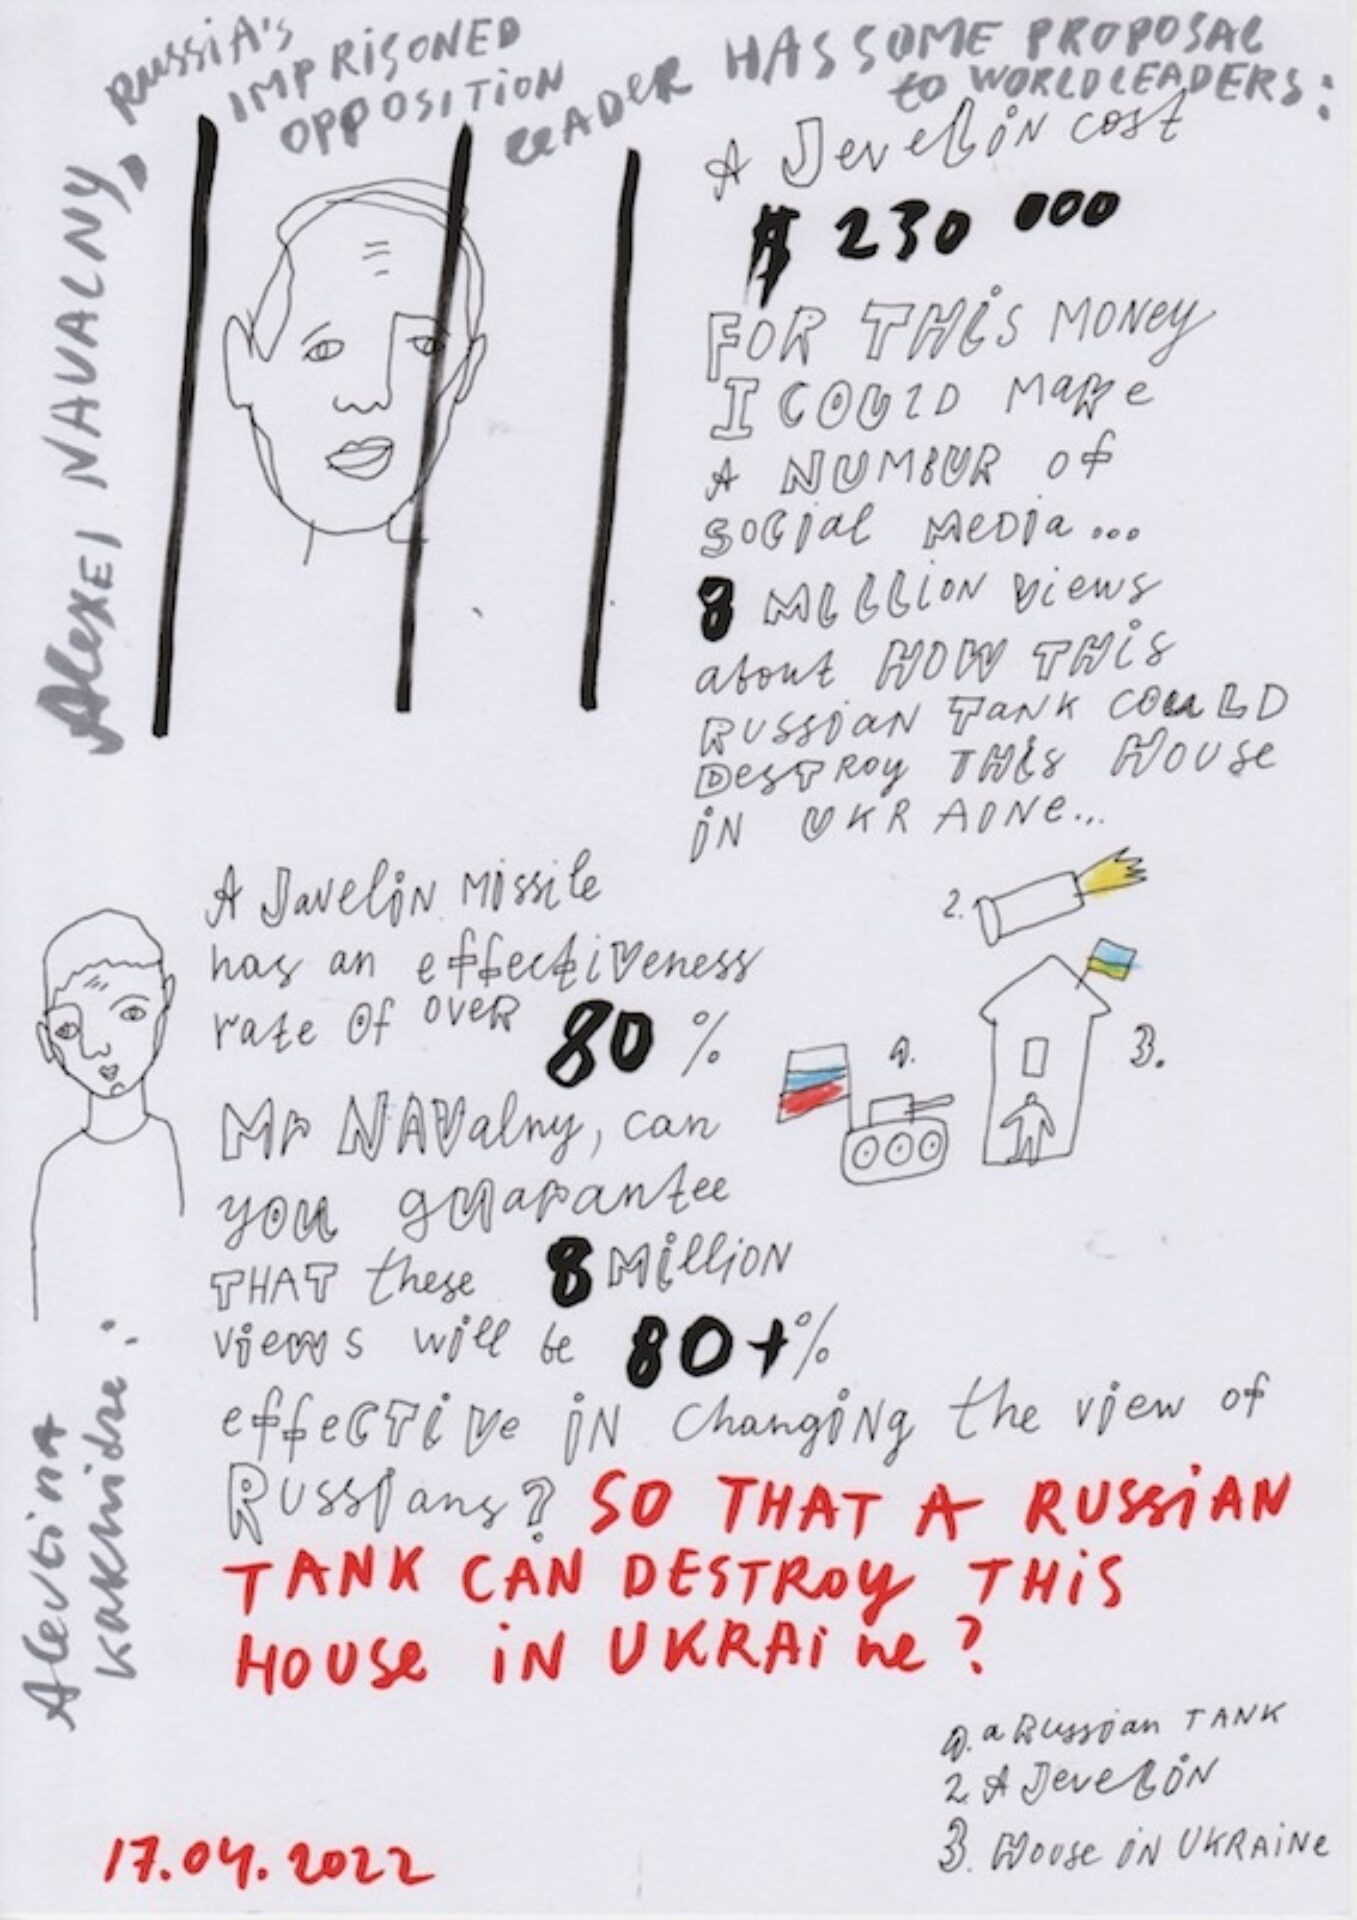 Alexei NAVALNY,
Russia's
IMPRISONED
OPPOSITION
LEADER HAS SOME PROPOSAL
to WORLD LEADERS:
A Jevelin cost
$ 230 000
FOR THIS MONEY
I COULD MAKE
A NUMBUR of
SOCIAL MEDIA...
8 MILLLION views
about HOW THIS
RUSSIAN TANK COULD
DESTROY THIS HOUSE
IN UKRAINE...
Alevtina
Kakhidze:
A Javelin missile
has an effectiveness
rate of over 80 %
Mr NAValny, can
you guarantee
THAT these 8 Million
views will be 80+%
effective in changing the view of
Russians? SO THAT A RUSSIAN
TANK CAN DESTROY THIS
HOUSE IN UKRAINE?
2.
1.
3.
1. a Russian TANK
2. A Jevelin
3. HOUSE IN UKRAINE
17.04.2022